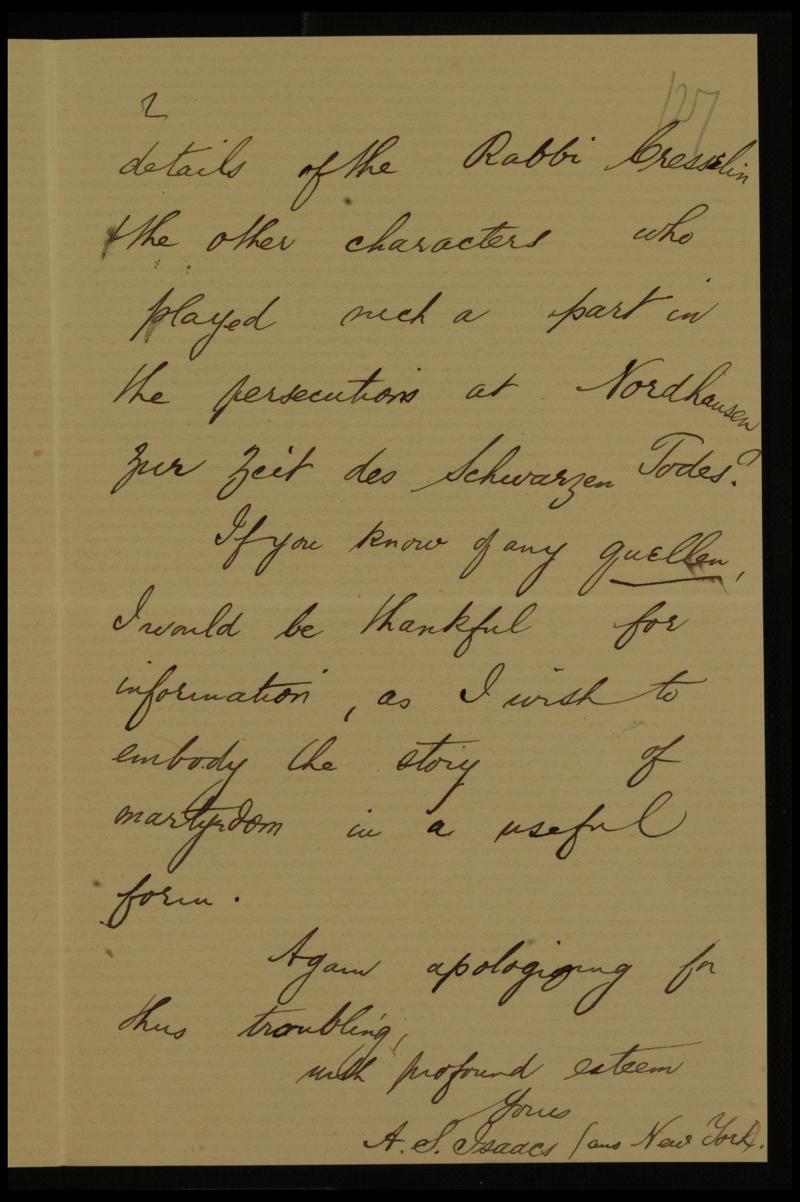 2
127
details of the Rabbi Cresselin
& the other characters who
played such a part in
the persecutions at Nordhausen
zur Zeit des Schwarzen Todes?
If you know of any quellen,
I would be thankful for
information, as I wish to
embody the story of
martyrdom in a useful
form.
Again apologizing for
thus troubling,
with profound esteem
Yours
A. S. Isaacs (aus New York).